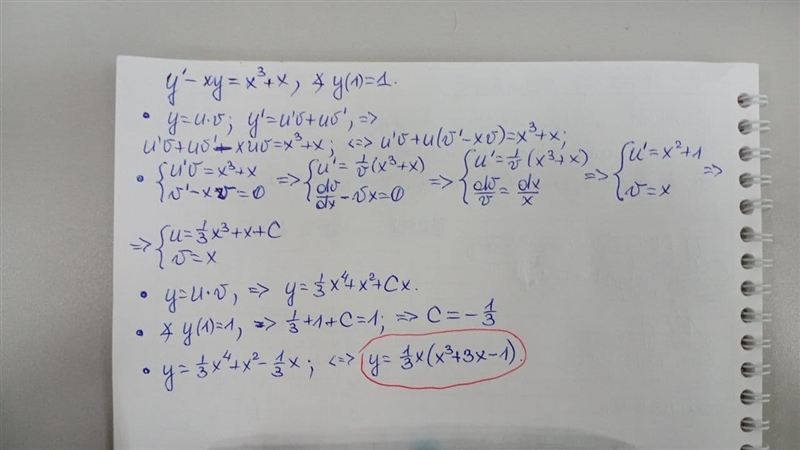 y' - xy = x³ + x, ∢ y(1) = 1.
• y = u·v; y' = u'v + uv', =>
u'v + uv' - xuv = x³ + x; <=> u'v + u(v' - xv) = x³ + x;
• { u'v = x³ + x ; v' - xv = 0 => { u' = 1/v (x³ + x) ; dv/dx - vx = 0 => { u' = 1/v (x³ + x) ; dv/v = dx/x => { u' = x² + 1 ; v = x =>
=> { u = 1/3 x³ + x + C ; v = x
• y = u·v, => y = 1/3 x⁴ + x² + Cx.
• ∢ y(1) = 1, => 1/3 + 1 + C = 1; => C = - 1/3
• y = 1/3 x⁴ + x² - 1/3 x; <=> y = 1/3 x(x³ + 3x - 1).